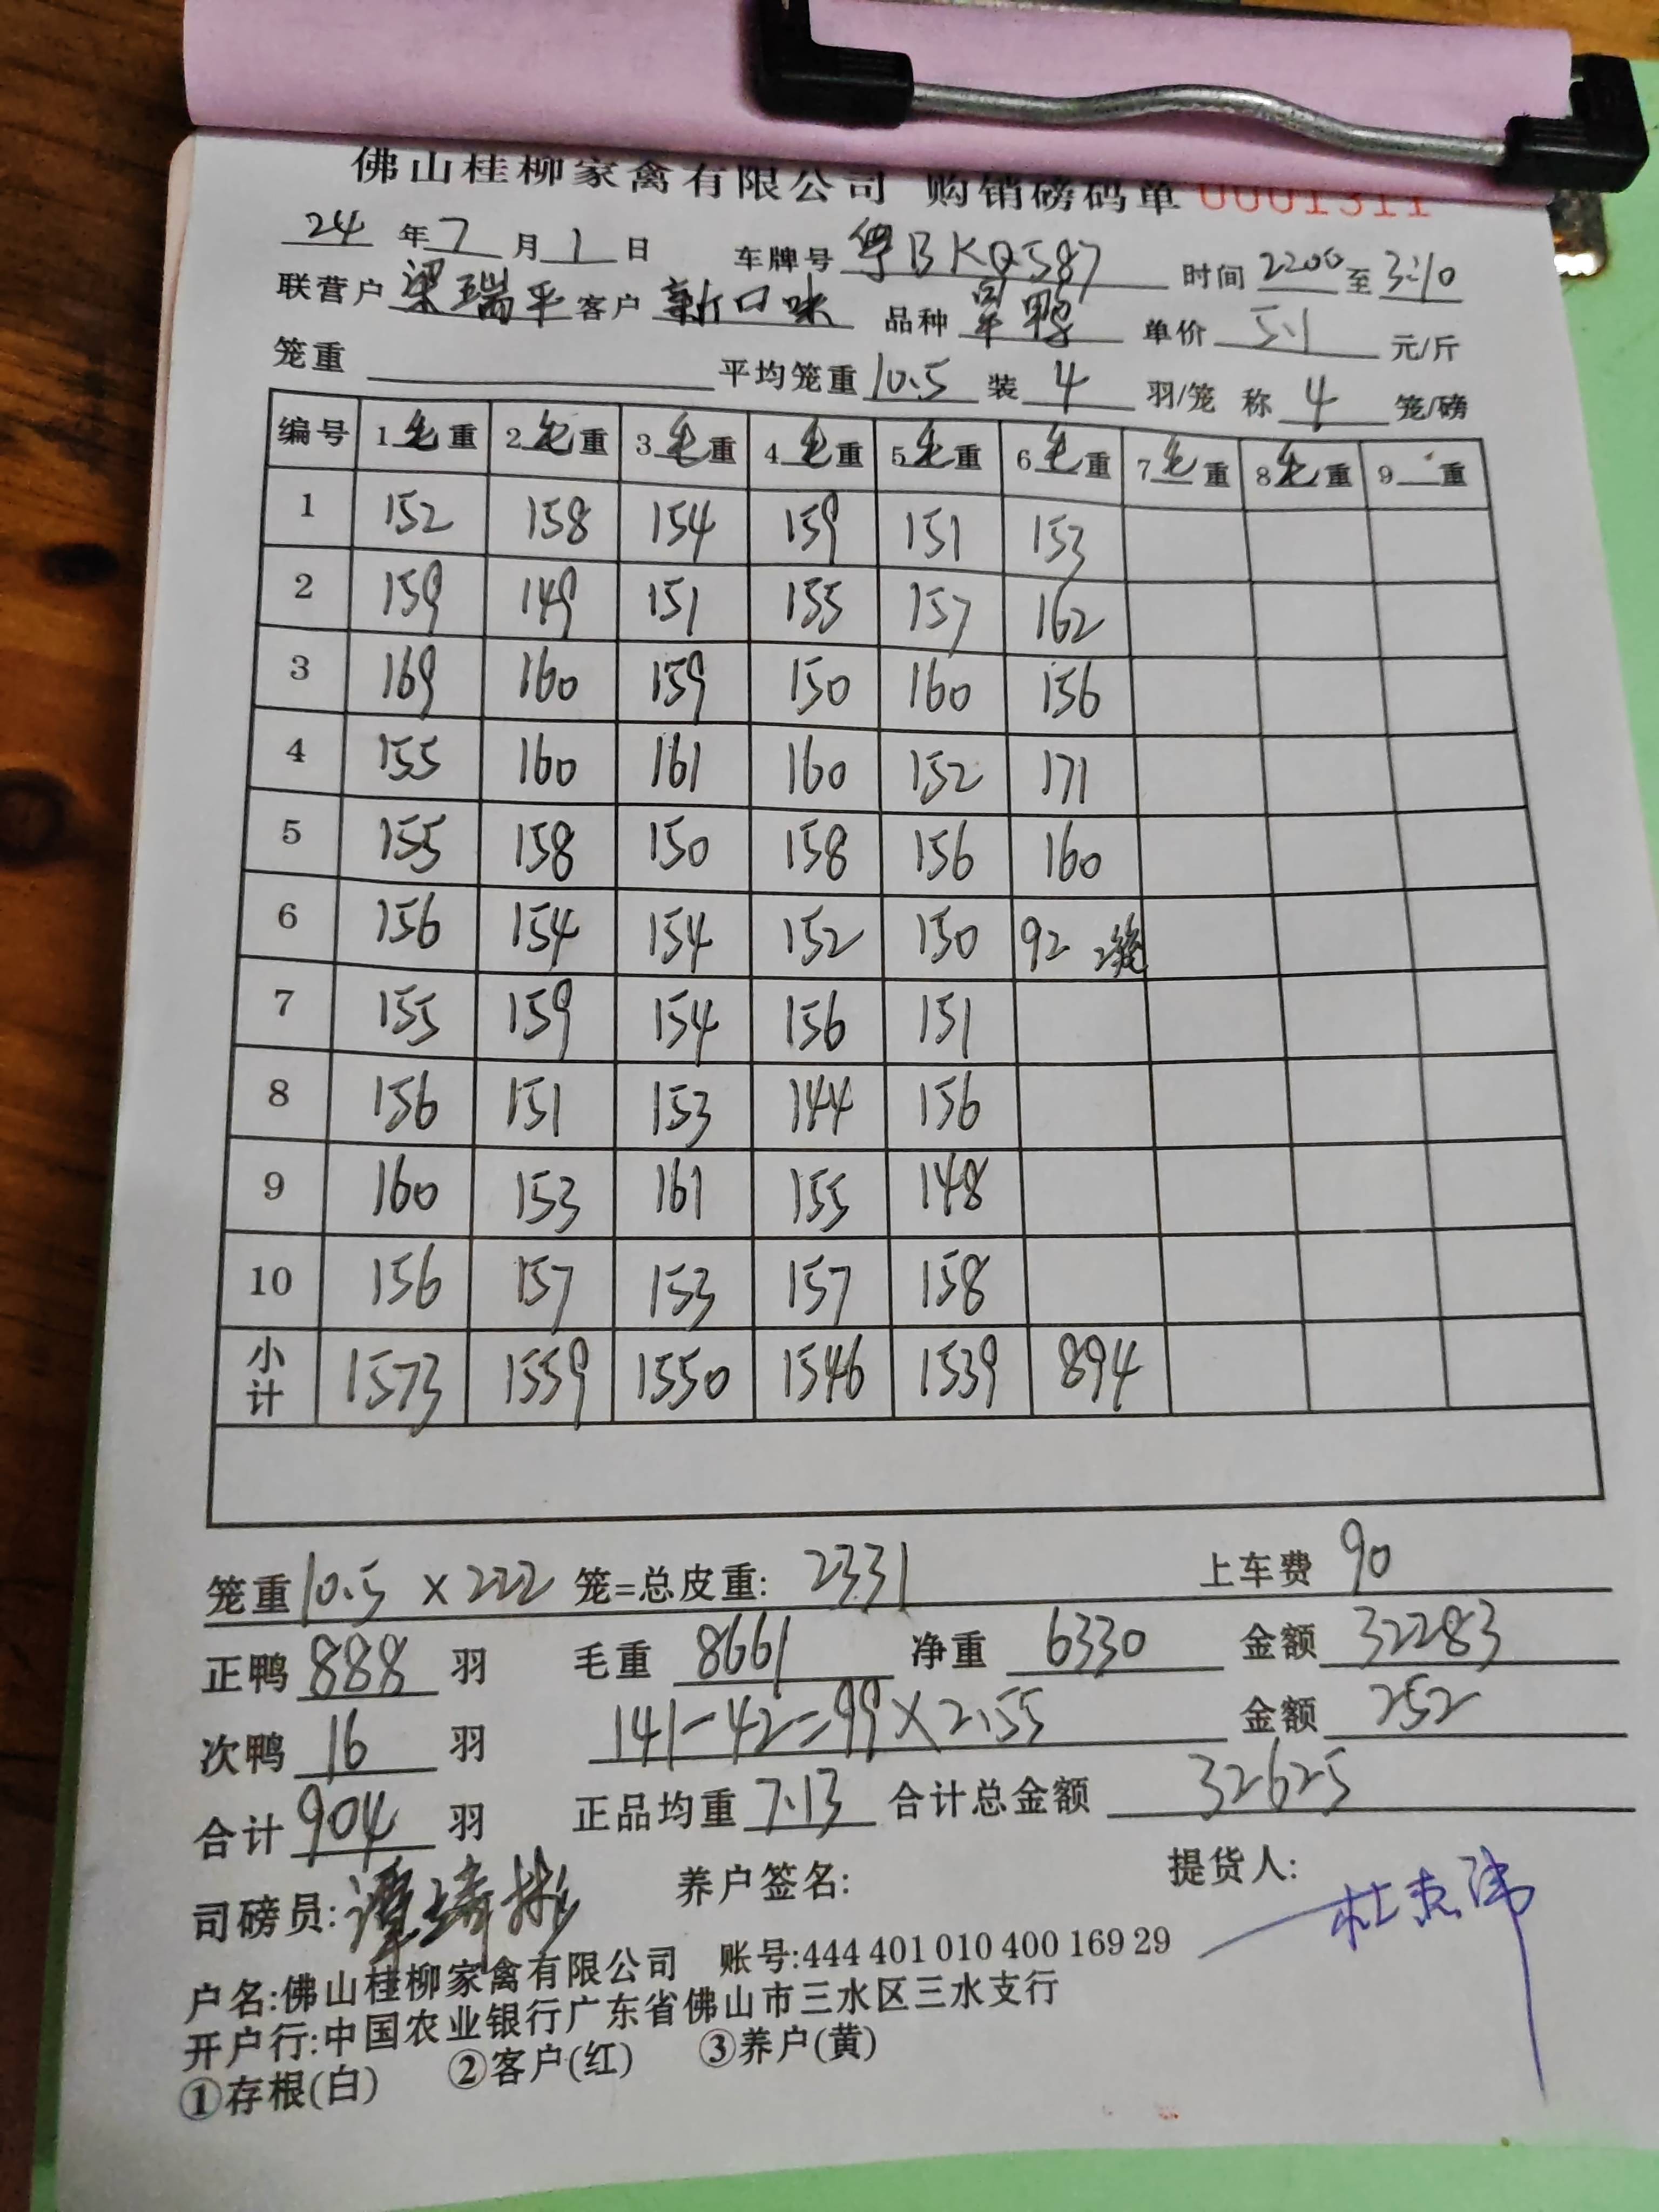 佛山桂柳家禽有限公司 购销磅码单 0001311
24 年 7 月 1 日 车牌号 粤BKQ587 时间 2200 至 3:10
联营户 梁瑞平 客户 新口味 品种 军鸭 单价 5.1 元/斤
笼重 平均笼重 10.5 装 4 羽/笼 称 4 笼/磅
编号 1毛重 2毛重 3毛重 4毛重 5毛重 6毛重 7毛重 8毛重 9重
1 152 158 154 159 151 153
2 159 149 151 155 157 162
3 169 160 159 150 160 156
4 155 160 161 160 152 171
5 155 158 150 158 156 160
6 156 154 154 152 150 92 2笼
7 155 159 154 156 151
8 156 151 153 144 156
9 160 153 161 155 148
10 156 157 153 157 158
小计 1573 1559 1550 1546 1539 894
笼重 10.5 × 222 笼=总皮重: 2331 上车费 90
正鸭 888 羽 毛重 8661 净重 6330 金额 32283
次鸭 16 羽 141-42=99×2.55 金额 252
合计 904 羽 正品均重 7.13 合计总金额 32625
司磅员: 养户签名: 提货人:
户名:佛山桂柳家禽有限公司 账号:444 401 010 400 169 29
开户行:中国农业银行广东省佛山市三水区三水支行
①存根(白) ②客户(红) ③养户(黄)